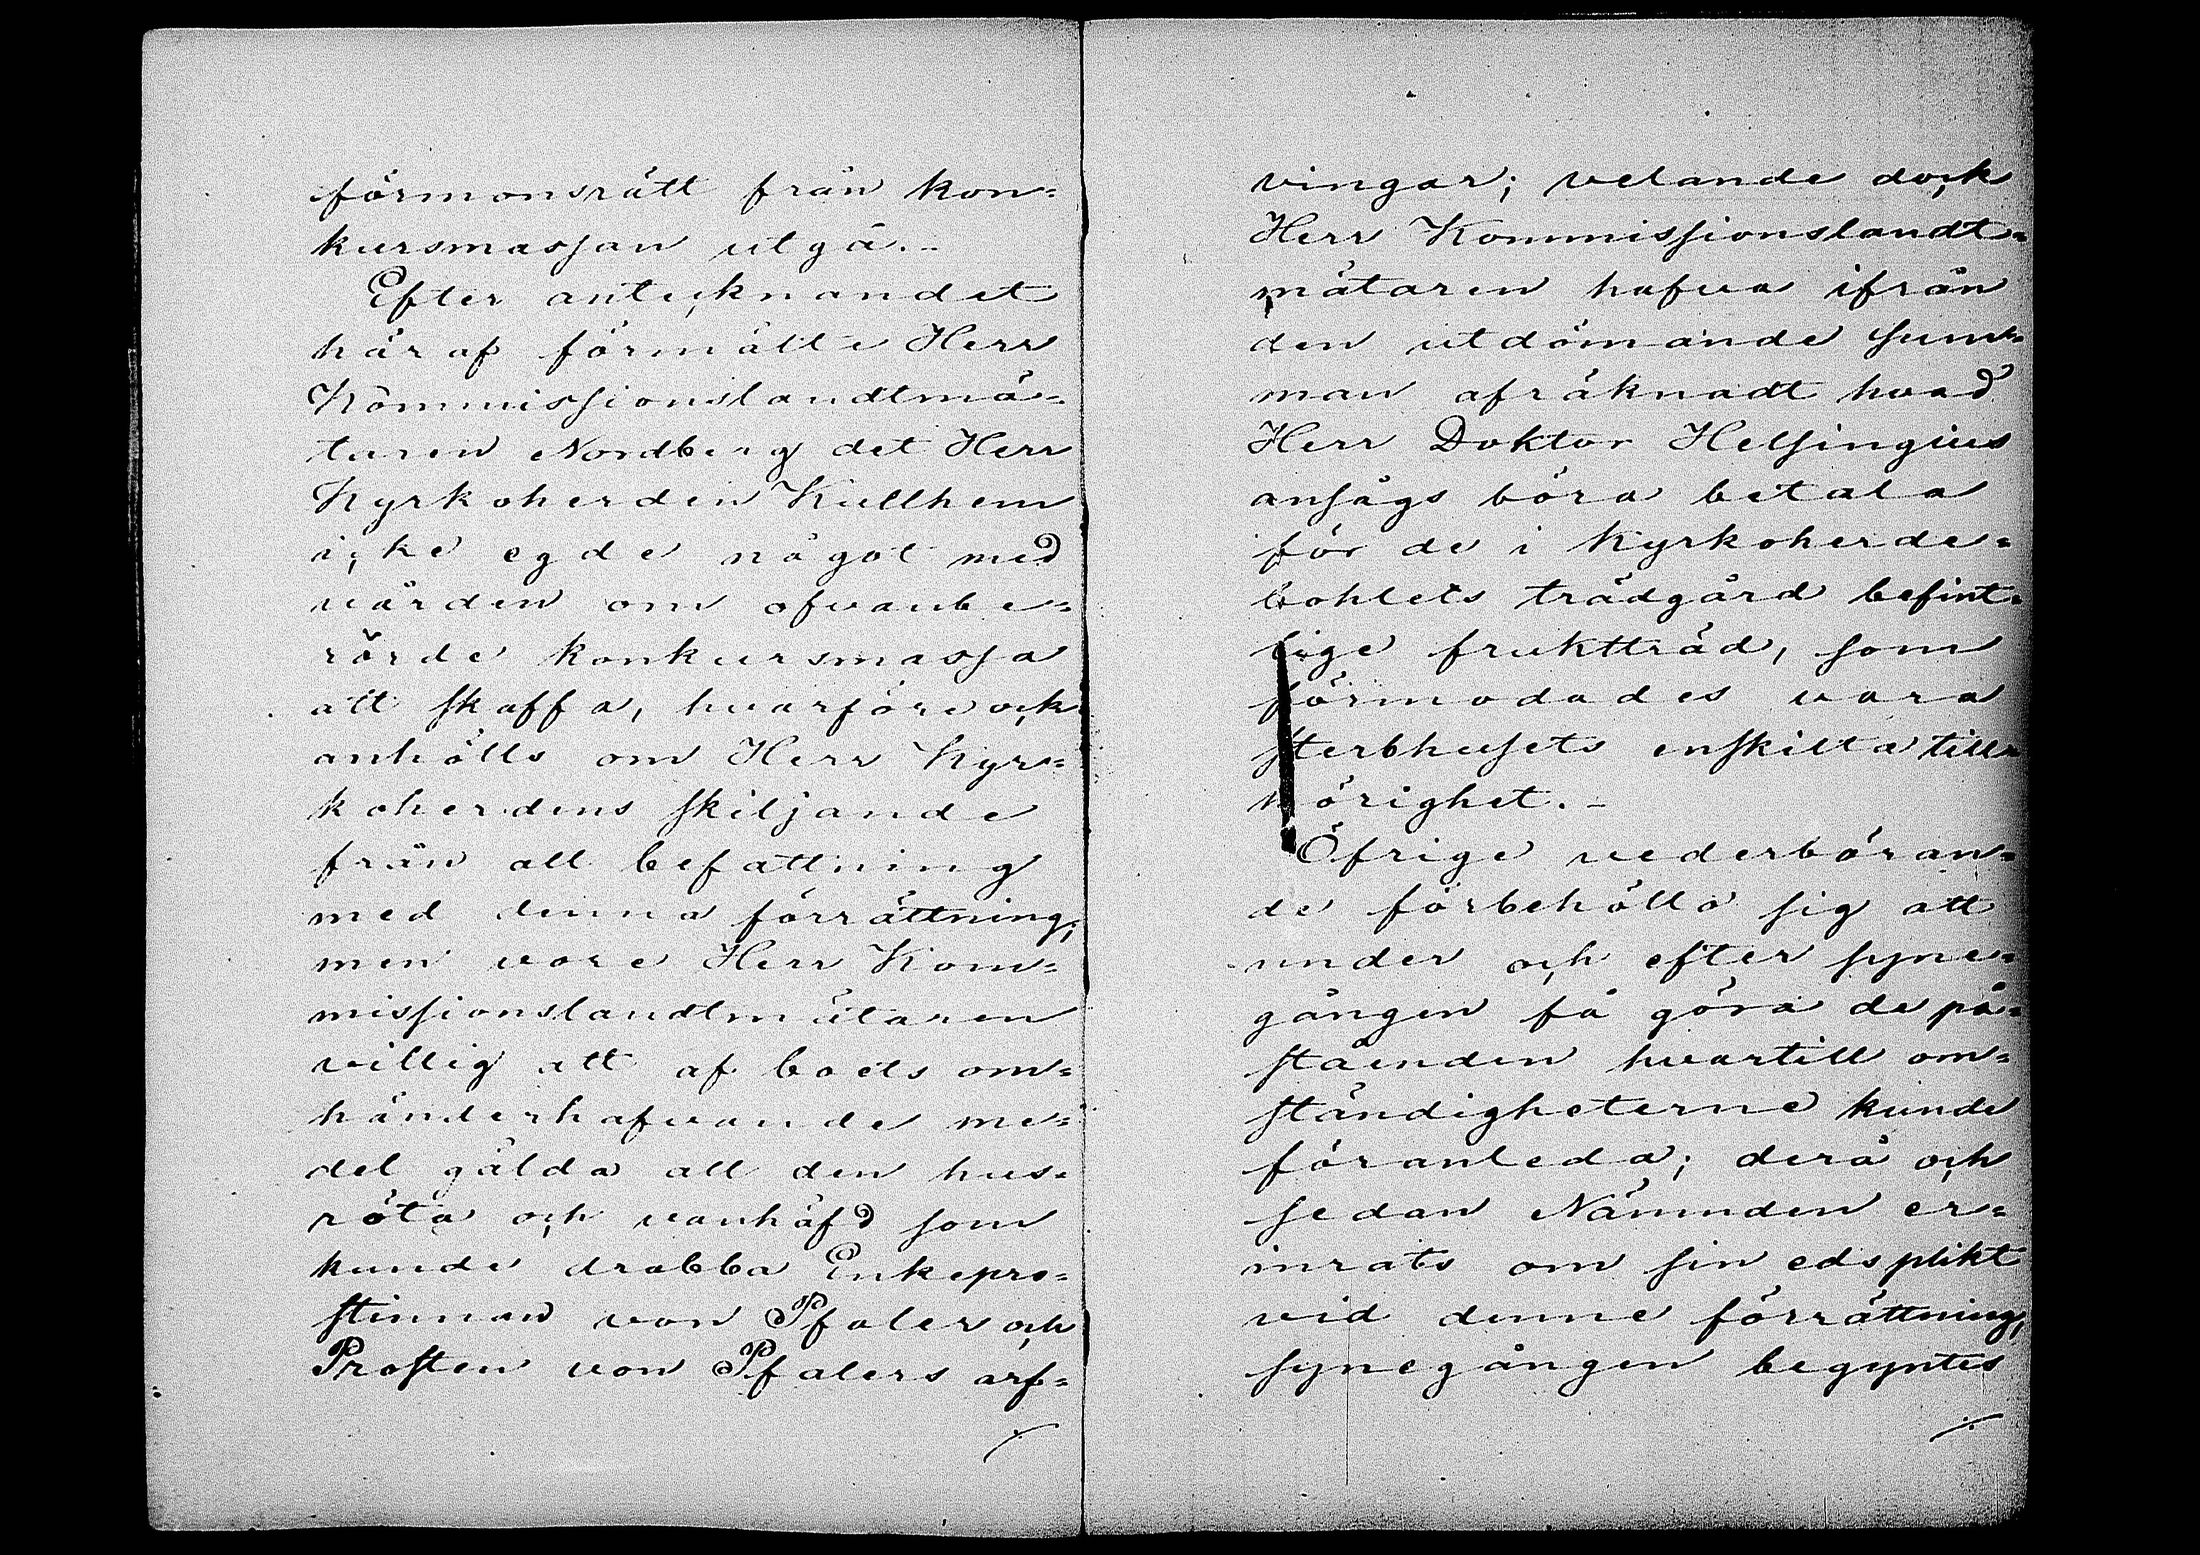 förmonsrätt från kon=
kursmassan utgå.–
Efter antecknandet
häraf förmälte Herr
Kommissionslandtmä=
taren Nordberg det Herr
Kyrkoherden Kullhem
icke egde något med
vården om ofvanbe=
rörde konkursmassa
att skaffa, hvarföre ock
anhölls om Herr Kyr=
koherdens skiljande
från all befattning
med denna förrättning;
men vore Herr Kom=
missionslandtmätaren
villig att af boets om=
händerhafvande me=
del gälda all den hus=
röta och vanhäfd som
kunde drabba Enkepro=
stinnan von Pfaler och
Prosten von Pfalers arf=
vingar; velande dock
Herr Kommissionslandt=
mätaren hafva ifrån
den utdömande sum=
man afräknadt hvad
Herr Doktor Helsingius
ansågs böra betala
för de i Kyrkoherde=
bohlets trädgård befint=
lige fruktträd, som
förmodades vara
sterbhusets enskilta till=
hörighet.–
Öfrige vederböran=
de förbehöllo sig att
under och efter syne=
gången få göra de på=
ståenden hvartill om=
ständigheterne kunde
föranleda; derå och
sedan Nämnden er=
inrats om sin edsplikt
vid denne förrättning,
synegången begyntes